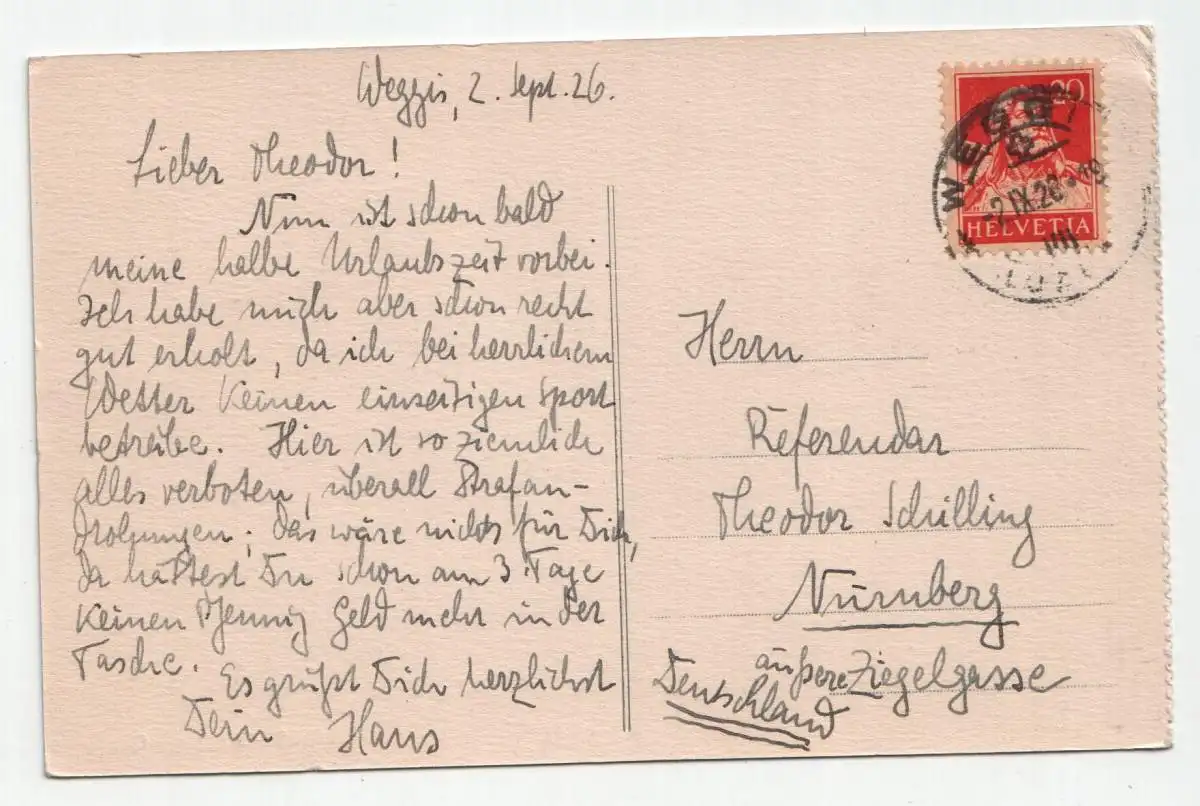 Weggis, 2. Sept. 26.
Lieber Theodor!
Nun ist schon bald
meine halbe Urlaubszeit vorbei.
Ich habe mich aber schon recht
gut erholt, da ich bei herrlichem
Wetter keinen einseitigen Sport
betreibe. Hier ist so ziemlich
alles verboten, überall Strafan-
drohungen; das wäre nichts für Dich,
da hättest Du schon am 3. Tage
keinen Pfennig Geld mehr in der
Tasche.
Es grüßt Dich herzlichst
Dein Hans
20
HELVETIA
WEGGIS
-2.IX.26-19
VIII
Herrn
Referendar
Theodor Schilling
Nürnberg
äußere Ziegelgasse
Deutschland